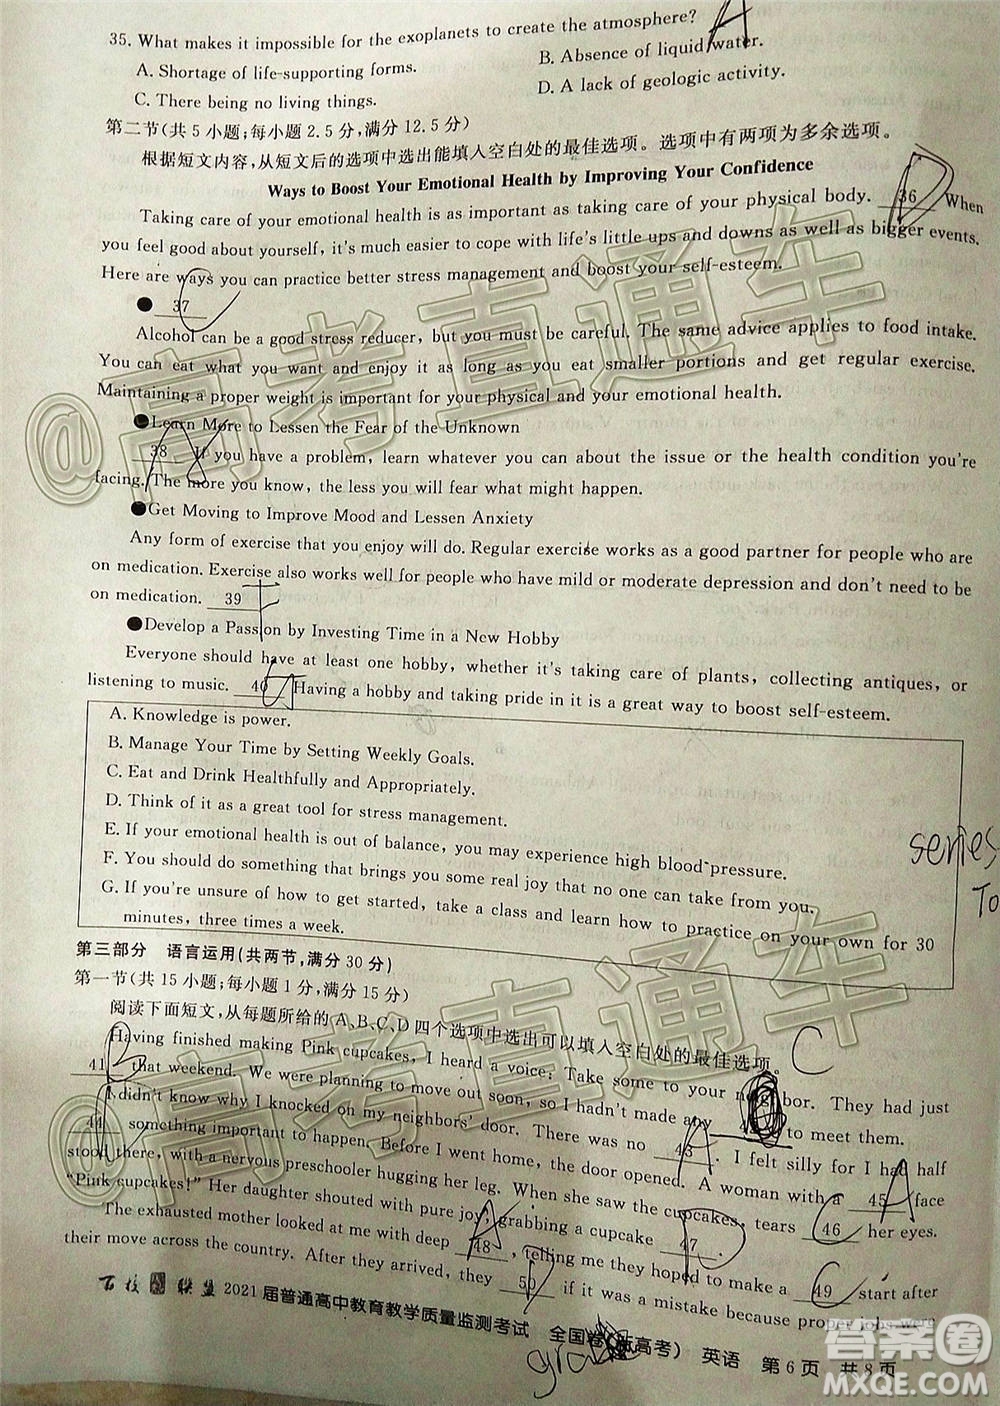 35. What makes it impossible for the exoplanets to create the atmosphere? A
A. Shortage of life-supporting forms. B. Absence of liquid water.
C. There being no living things. D. A lack of geologic activity.
第二节(共5小题;每小题2.5分,满分12.5分)
根据短文内容,从短文后的选项中选出能填入空白处的最佳选项。选项中有两项为多余选项。
Ways to Boost Your Emotional Health by Improving Your Confidence
Taking care of your emotional health is as important as taking care of your physical body. 36 D When
you feel good about yourself, it's much easier to cope with life's little ups and downs as well as bigger events.
Here are ways you can practice better stress management and boost your self-esteem.
●37 C
Alcohol can be a good stress reducer, but you must be careful. The same advice applies to food intake.
You can eat what you want and enjoy it as long as you eat smaller portions and get regular exercise.
Maintaining a proper weight is important for your physical and your emotional health.
●Learn More to Lessen the Fear of the Unknown
38 If you have a problem, learn whatever you can about the issue or the health condition you're
facing. The more you know, the less you will fear what might happen.
●Get Moving to Improve Mood and Lessen Anxiety
Any form of exercise that you enjoy will do. Regular exercise works as a good partner for people who are
on medication. Exercise also works well for people who have mild or moderate depression and don't need to be
on medication. 39 F
●Develop a Passion by Investing Time in a New Hobby
Everyone should have at least one hobby, whether it's taking care of plants, collecting antiques, or
listening to music. 40 Having a hobby and taking pride in it is a great way to boost self-esteem.
A. Knowledge is power.
B. Manage Your Time by Setting Weekly Goals.
C. Eat and Drink Healthfully and Appropriately.
D. Think of it as a great tool for stress management.
E. If your emotional health is out of balance, you may experience high blood pressure.
F. You should do something that brings you some real joy that no one can take from you.
G. If you're unsure of how to get started, take a class and learn how to practice on your own for 30
minutes, three times a week.
series
To
第三部分 语言运用(共两节,满分30分)
第一节(共15小题;每小题1分,满分15分)
阅读下面短文,从每题所给的A、B、C、D四个选项中选出可以填入空白处的最佳选项。 C
Having finished making Pink cupcakes, I heard a voice: Take some to your neighbor. They had just
41 B that weekend. We were planning to move out soon, so I hadn't made any to meet them.
I didn't know why I knocked on my neighbors' door. There was no 43 A. I felt silly for I had half
44 something important to happen. Before I went home, the door opened. A woman with a 45 A face
stood there, with a nervous preschooler hugging her leg. When she saw the cupcakes, tears 46 C her eyes.
"Pink cupcakes!" Her daughter shouted with pure joy, grabbing a cupcake 47 D.
The exhausted mother looked at me with deep 48 A, telling me they had hoped to make a 49 C start after
their move across the country. After they arrived, they 50 D if it was a mistake because proper jobs were
百校联盟2021届普通高中教育教学质量监测考试 全国卷(新高考) 英语 第6页 共8页
@高考直通车
@高考直通车
答案圈
MXQE.COM